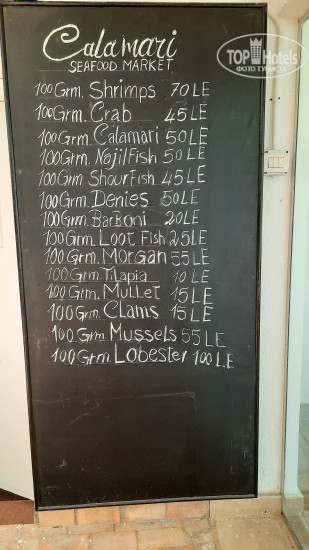 Calamari
SEAFOOD MARKET
100 Grm. Shrimps 70 LE
100 Grm. Crab 45 LE
100 Grm. Calamari 50 LE
100 Grm. Najil Fish 50 LE
100 Grm. Shour Fish 45 LE
100 Grm. Denies 50 LE
100 Grm. Barboni 20 LE
100 Grm. Loot Fish 25 LE
100 Grm. Morgan 55 LE
100 Grm. Tilapia 10 LE
100 Grm. Mullet 15 LE
100 Grm. Clams 15 LE
100 Grm. Mussels 55 LE
100 Grm. Lobester 100 LE
TOP Hotels
ФОТО ТУРИСТА